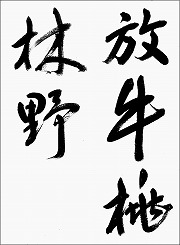 放牛桃
林野